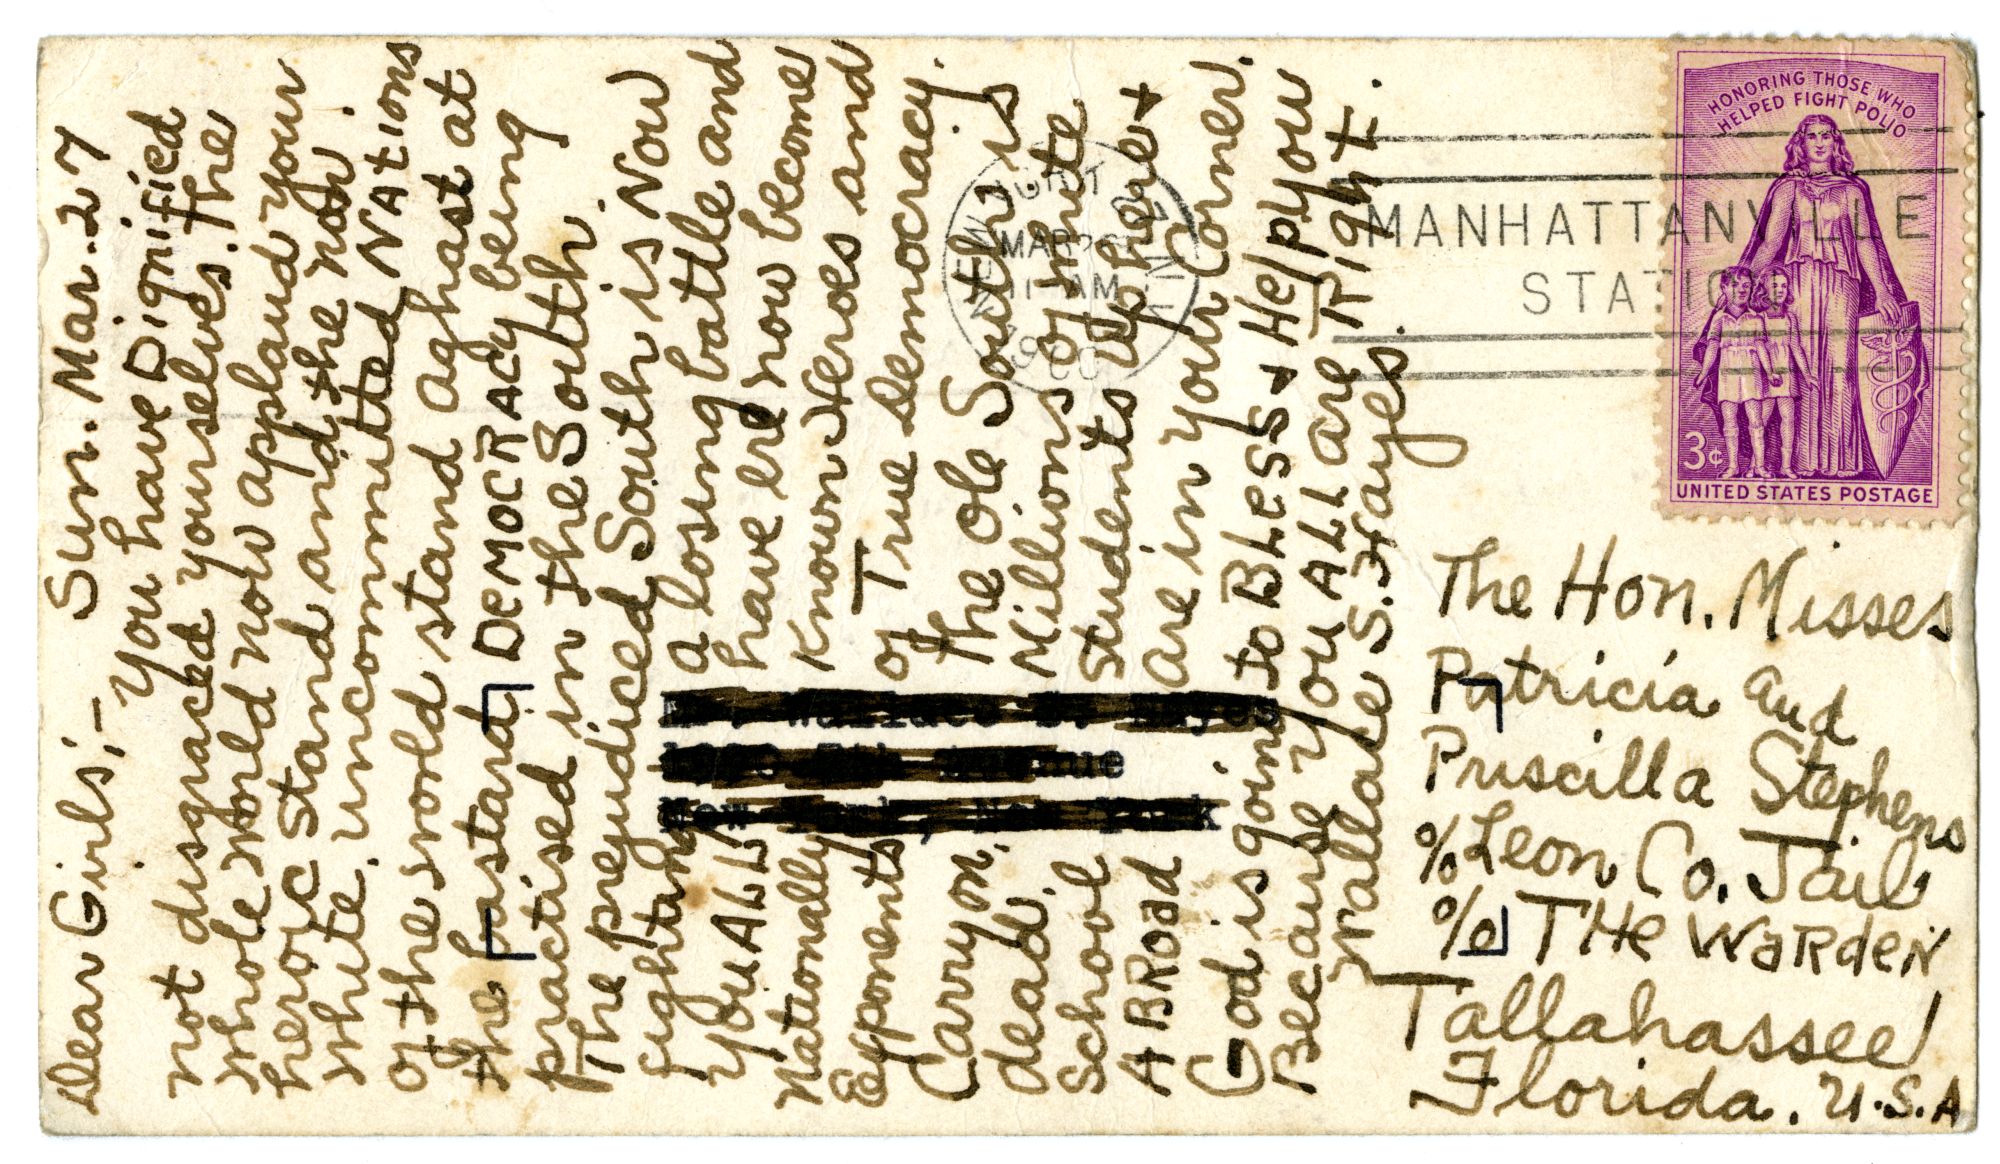 Sun. Mar. 27
Dear Girls;-
You have Dignified
not disgraced yourselves. The
whole world now applaud your
heroic stand and the non
white, uncommitted NATIONS
of the world stand aghast at
the bastard DEMOCRACY being
practised in the South.
The prejudiced South is Now
fighting a losing battle and
YOU ALL have ere now become
Nationally known Heroes and
Exponents of True democracy.
Carry on. The Ole South is
dead. Millions of white
School students up here +
ABROAD are in your corner.
God is going to BLESS + Help you
Because YOU ALL are Right.
Wallace S. Hayes
NEW YORK, N.Y.
MAR 26
11-AM
1960
MANHATTANVILLE
STATION
HONORING THOSE WHO
HELPED FIGHT POLIO
3¢
UNITED STATES POSTAGE
The Hon. Misses
Patricia and
Priscilla Stephens
% Leon Co. Jail
% THe WaRdeN
Tallahassee
Florida. U.S.A